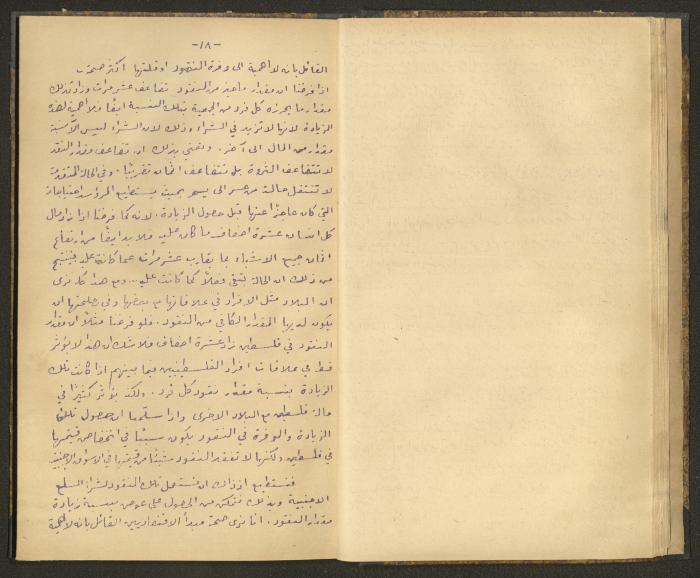 -١٨-
القائل بانه لا اهمية الى وفرة النقود او قلتها اكثر صحة.
اذا فرضنا ان مقدار ما يخص من النقود تضاعف عشر مرات وزاد كذلك
مقدار ما يحرزه كل فرد من الجمعية بتلك النسبة ايضًا فلا اهمية لهذه
الزيادة لانها لا تزيد في الشراء وذلك لان الشراء ليس الا نسبة
مقدار من المال الى آخر. ونعني بذلك ان تضاعف مقدار النقد
لا تتضاعف الثروة بل تتضاعف اثمان تقريبًا. وفي الحالة المتقدمة
لا تنتقل حالة من عسر الى يسر بحيث يستطيع المرء سد احتياجات
التي كان عاجزًا عنها قبل حصول الزيادة. لانه كما فرضنا اذا زاد مال
كل انسان عشرة اضعاف ما كان عليه فلا بد ايضًا من ارتفاع
اثمان جميع الاشياء بما يقارب عشر مرات عما كانت عليه فينتج
من ذلك ان الحالة تبقى فعلًا كما كانت عليه. ومع هذا كله نرى
ان البلاد مثل الافراد في علاقاتها مع بعضها وفي مصلحتها ان
يكون لديها المقدار الكافي من النقود. فلو فرضنا مثلًا ان مقدار
النقود في فلسطين زاد عشرة اضعاف فلا شك ان هذا لا يؤثر
قط في علاقات افراد الفلسطينيين فيما بينهم اذا كانت تلك
الزيادة بنسبة مقدار نقود كل فرد. ولكنه يؤثر كثيرًا في
حالة فلسطين مع البلاد الاخرى واذا سلمنا ان حصول تلك
الزيادة والوفرة في النقود يكون سببًا في انخفاض قيمتها
في فلسطين ولكنها لا تفقد النقود شيئًا من قيمتها في الاسواق الاجنبية
فنستطيع اذ ذاك ان نستعمل تلك النقود لشراء السلع
الاجنبية وبذلك نتمكن من الحصول على عوض بنسبة زيادة
مقدار النقود. اننا نرى صحة مبدأ الاقتصاديين القائل بانه لا اهمية